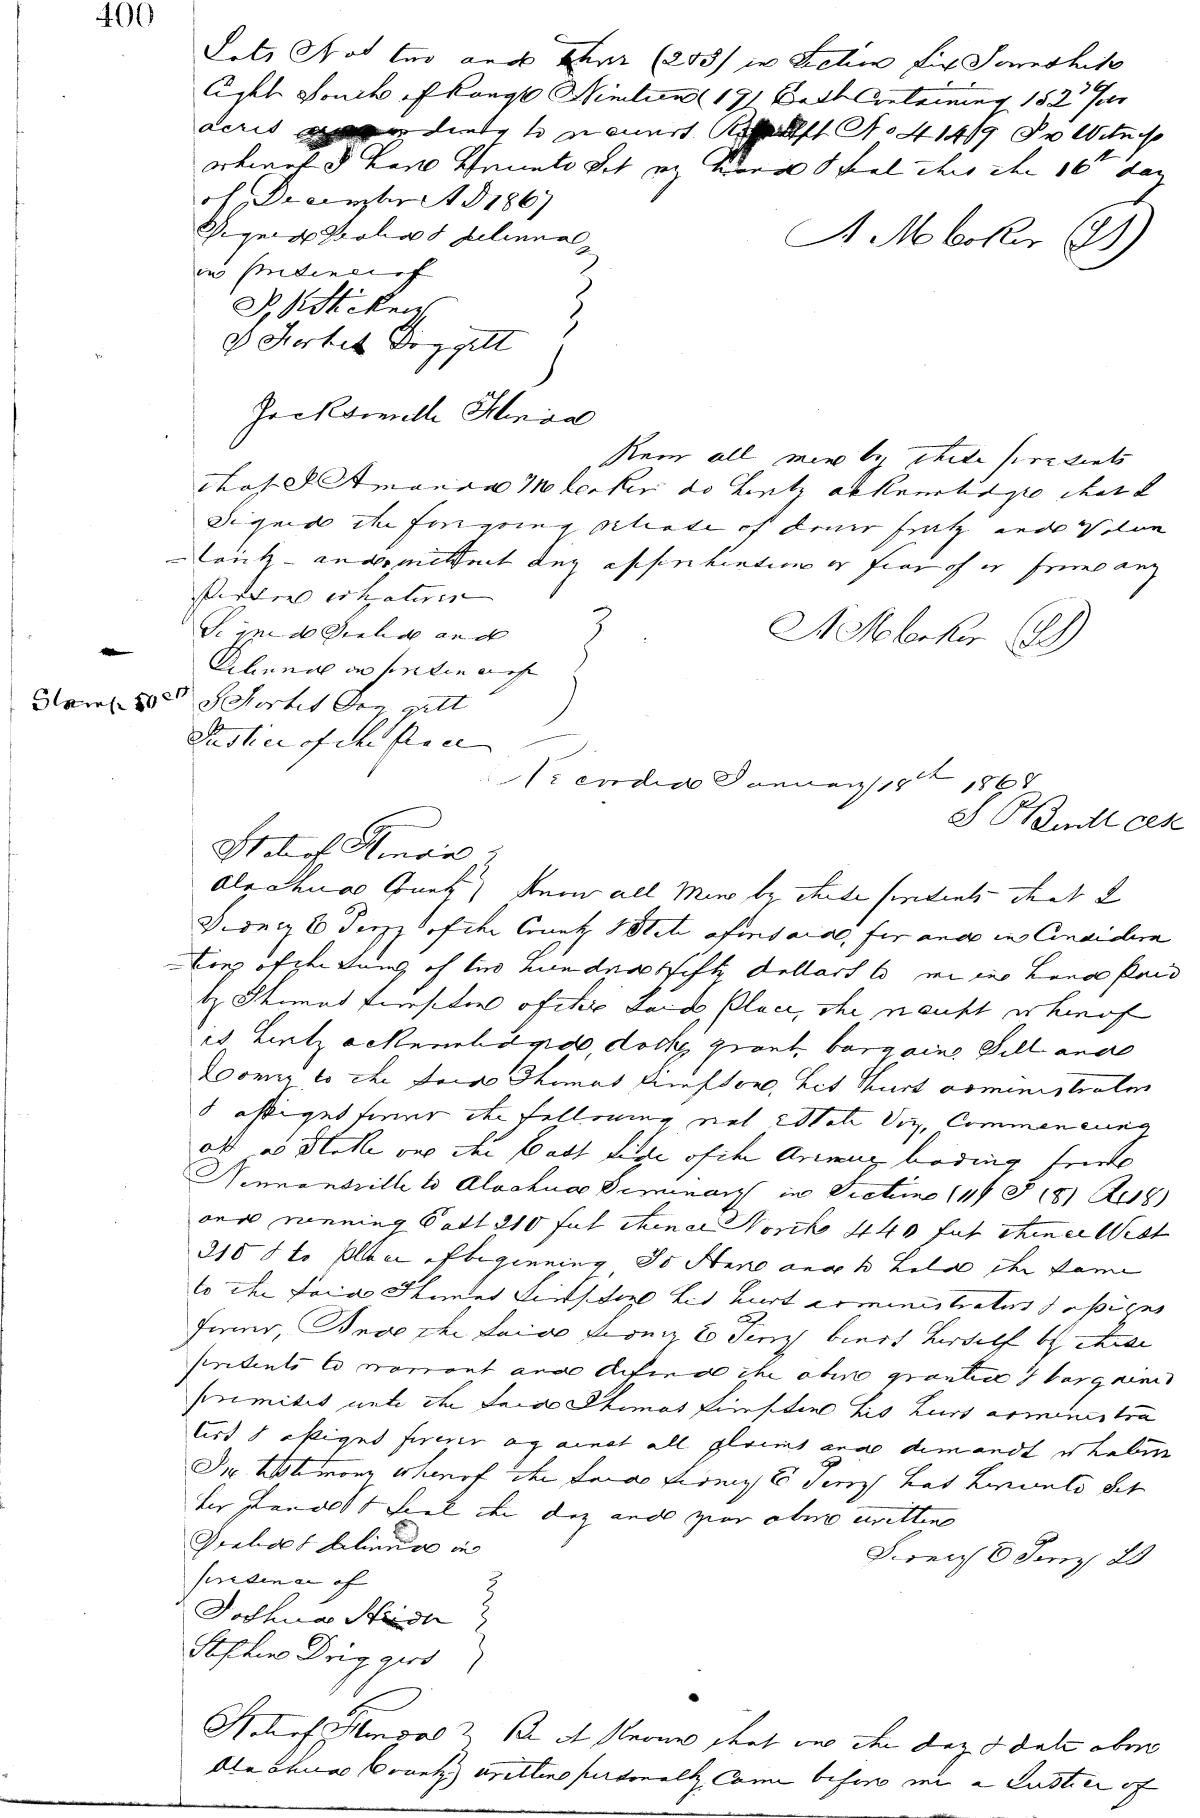 400
Lots Nos two and three (2&3) in Section Six Township
Eight South of Range Nineteen (19) East Containing 152
acres according to receivers Receipt No 4149 In Witness
whereof I have hereunto Set my hand & Seal this the 16th day
of December AD 1867
Signed Sealed & delivered
A M Coker (LS)
in presence of
P. K Stickney
S Forbes Doggett
Jacksonville Florida
Know all men by these presents
that I Amanda M Coker do hereby acknowledge that I
Signed the foregoing release of dower freely and Volun
=tarily - and without any apprehension or fear of or from any
Person whatever
Signed Sealed and
A M Coker (LS)
Delivered in presence of
Stamp 50cts S Forbes Doggett
Justice of the Peace
Recorded January 18th 1868
State of Florida
Alachua County Know all Men by these presents that I
Sidney E Terry of the County & State aforesaid, for and in Considera
=tion of the Sum of two hundred & fifty dollars to me in hand Paid
by Thomas Simpson of the Said Place, the receipt whereof
is hereby acknowledged, doth grant, bargain Sell and
Convey to the Said Thomas Simpson, his heirs administrators
& assigns forever the following real Estate Viz, Commencing
at a Stake on the East Side of the Avenue leading from
Newnansville to Alachua Seminary in Section (11) T (8) R (18)
and running East 210 feet thence North 440 feet thence West
210 & to Place of beginning, To Have and to hold the Same
to the Said Thomas Simpson his heirs administrators & assigns
forever, And the Said Sidney E Terry binds herself by these
presents to warrant and defend the above granted & bargained
premises unto the Said Thomas Simpson his heirs administra
tors & assigns forever against all claims and demands whatever
In testimony whereof the Said Sidney E Terry has hereunto Set
her hand & Seal the day and year above written
Sealed & delivered in
Sidney E Terry LS
presence of
Joshua
Stephen Driggers
State of Florida Be it Known that on the day & date above
Alachua County written personally Came before me a Justice of